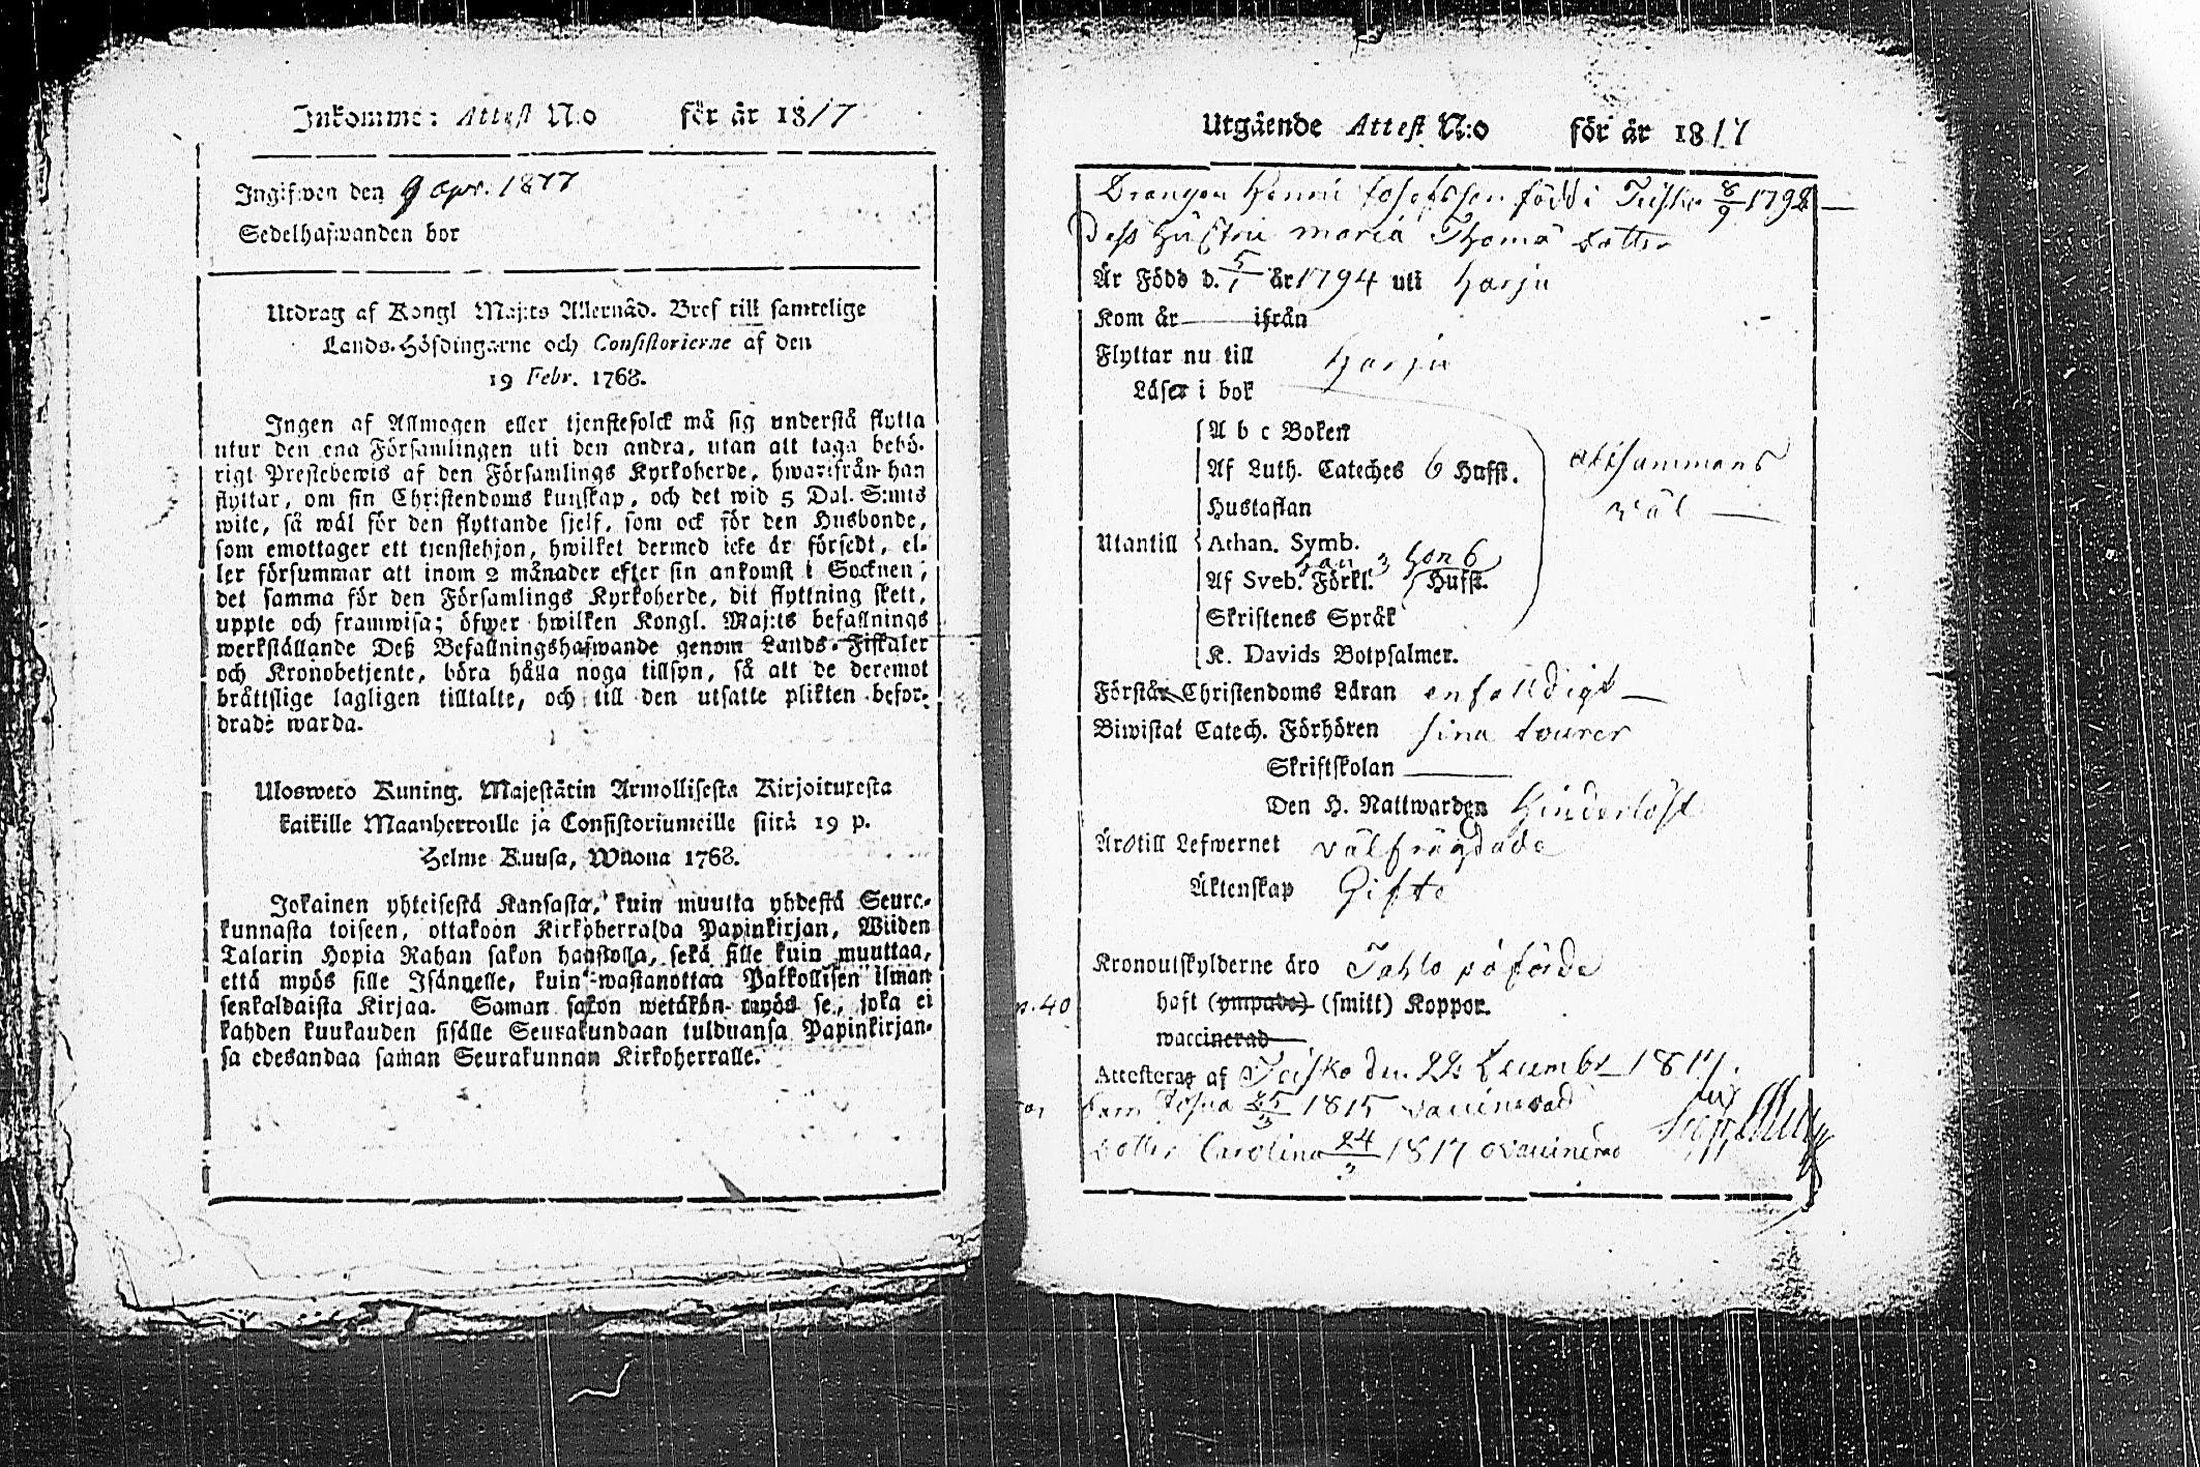 Inkomme: Attest N:o för år 1817
Ingifwen den 9 apr. 1817
Sedelhafwanden bor
Utdrag af Kongl Maj:ts Allernåd. Bref till samtelige
Lands-Höfdingarne och Consistorierne af den
19 Febr. 1768.
Ingen af Allmogen eller tjenstefolck må sig understå flytta
utur den ena Församlingen uti den andra, utan att taga behö-
rigt Prestebewis af den Församlings Kyrkoherde, hwarifrån han
flyttar, om sin Christendoms kunskap, och det wid 5 Dal. S:mts
wite, så wäl för den flyttande sjelf, som ock för den Husbonde,
som emottager ett tjenstehjon, hwilket dermed icke är försedt, el-
ler försummar att inom 2 månader efter sin ankomst i Socknen,
det samma för den Församlings Kyrkoherde, dit flyttning skett,
uppte och framwisa; öfwer hwilken Kongl. Maj:ts befallnings
werkställande Deß Befallningshafwande genom Lands-Fiskaler
och Kronobetjente, böra hålla noga tillsyn, så att de deremot
bråttslige lagligen tilltalte, och till den utsatte plikten befor-
drade warda.
Uloswero Kuning. Majestätin Armollisesta Kirjoituxesta
kaikille Maanherroille ja Consistoriumeille siitä 19 p.
Helme Kuusa, Wuona 1768.
Jokainen yhteisestä Kansasta, kuin muutta yhdestä Seura-
kunnasta toiseen, ottakoon Kirkoherralda Papinkirjan, Wiiden
Talarin Hopia Rahan sakon haastolla, sekä sille kuin muuttaa,
että myös sille Isännelle, kuin wastanottaa Palkollisen ilman
senkaldaista Kirjaa. Saman sakon wetäkön myös se, joka ei
kahden kuukauden sisälle Seurakundaan tulduansa Papinkirjan-
sa edesandaa saman Seurakunnan Kirkoherralle.
Utgående Attest N:o för år 1817
Drängen Henric Josefsson född i Teisko 8/9 1792
Dess Hustru Maria Thomä dotter
Är Född d. 5/1 år 1794 uti Harju
Kom år ifrån
Flyttar nu till Harju
Läser i bok
A b c Boken
Af Luth. Cateches 6 Hufst. altsammans
Hustaflan väl
Utantill Athan. Symb.
han 3 hon 6
Af Sveb. Förkl. Hufst.
Skriftenes Språk
K. Davids Botpsalmer.
Förstår Christendoms Läran enfalldigt
Biwistat Catech. Förhören sina tourer
Skriftskolan
Den H. Nattwarden Hinderlöst
Äro till Lefwernet välfrägdade
Äktenskap Gifte
Kronoutskylderne äro Tahlo påförde
haft (ympade) (smitt) Koppor.
p. 40
waccinerad
Attesteras af Teisko den 22 Decembr 1817.
barn Josua 25/3 1815 vaccinerad
dotter Carolina 24/3 1817 ovaccinerad